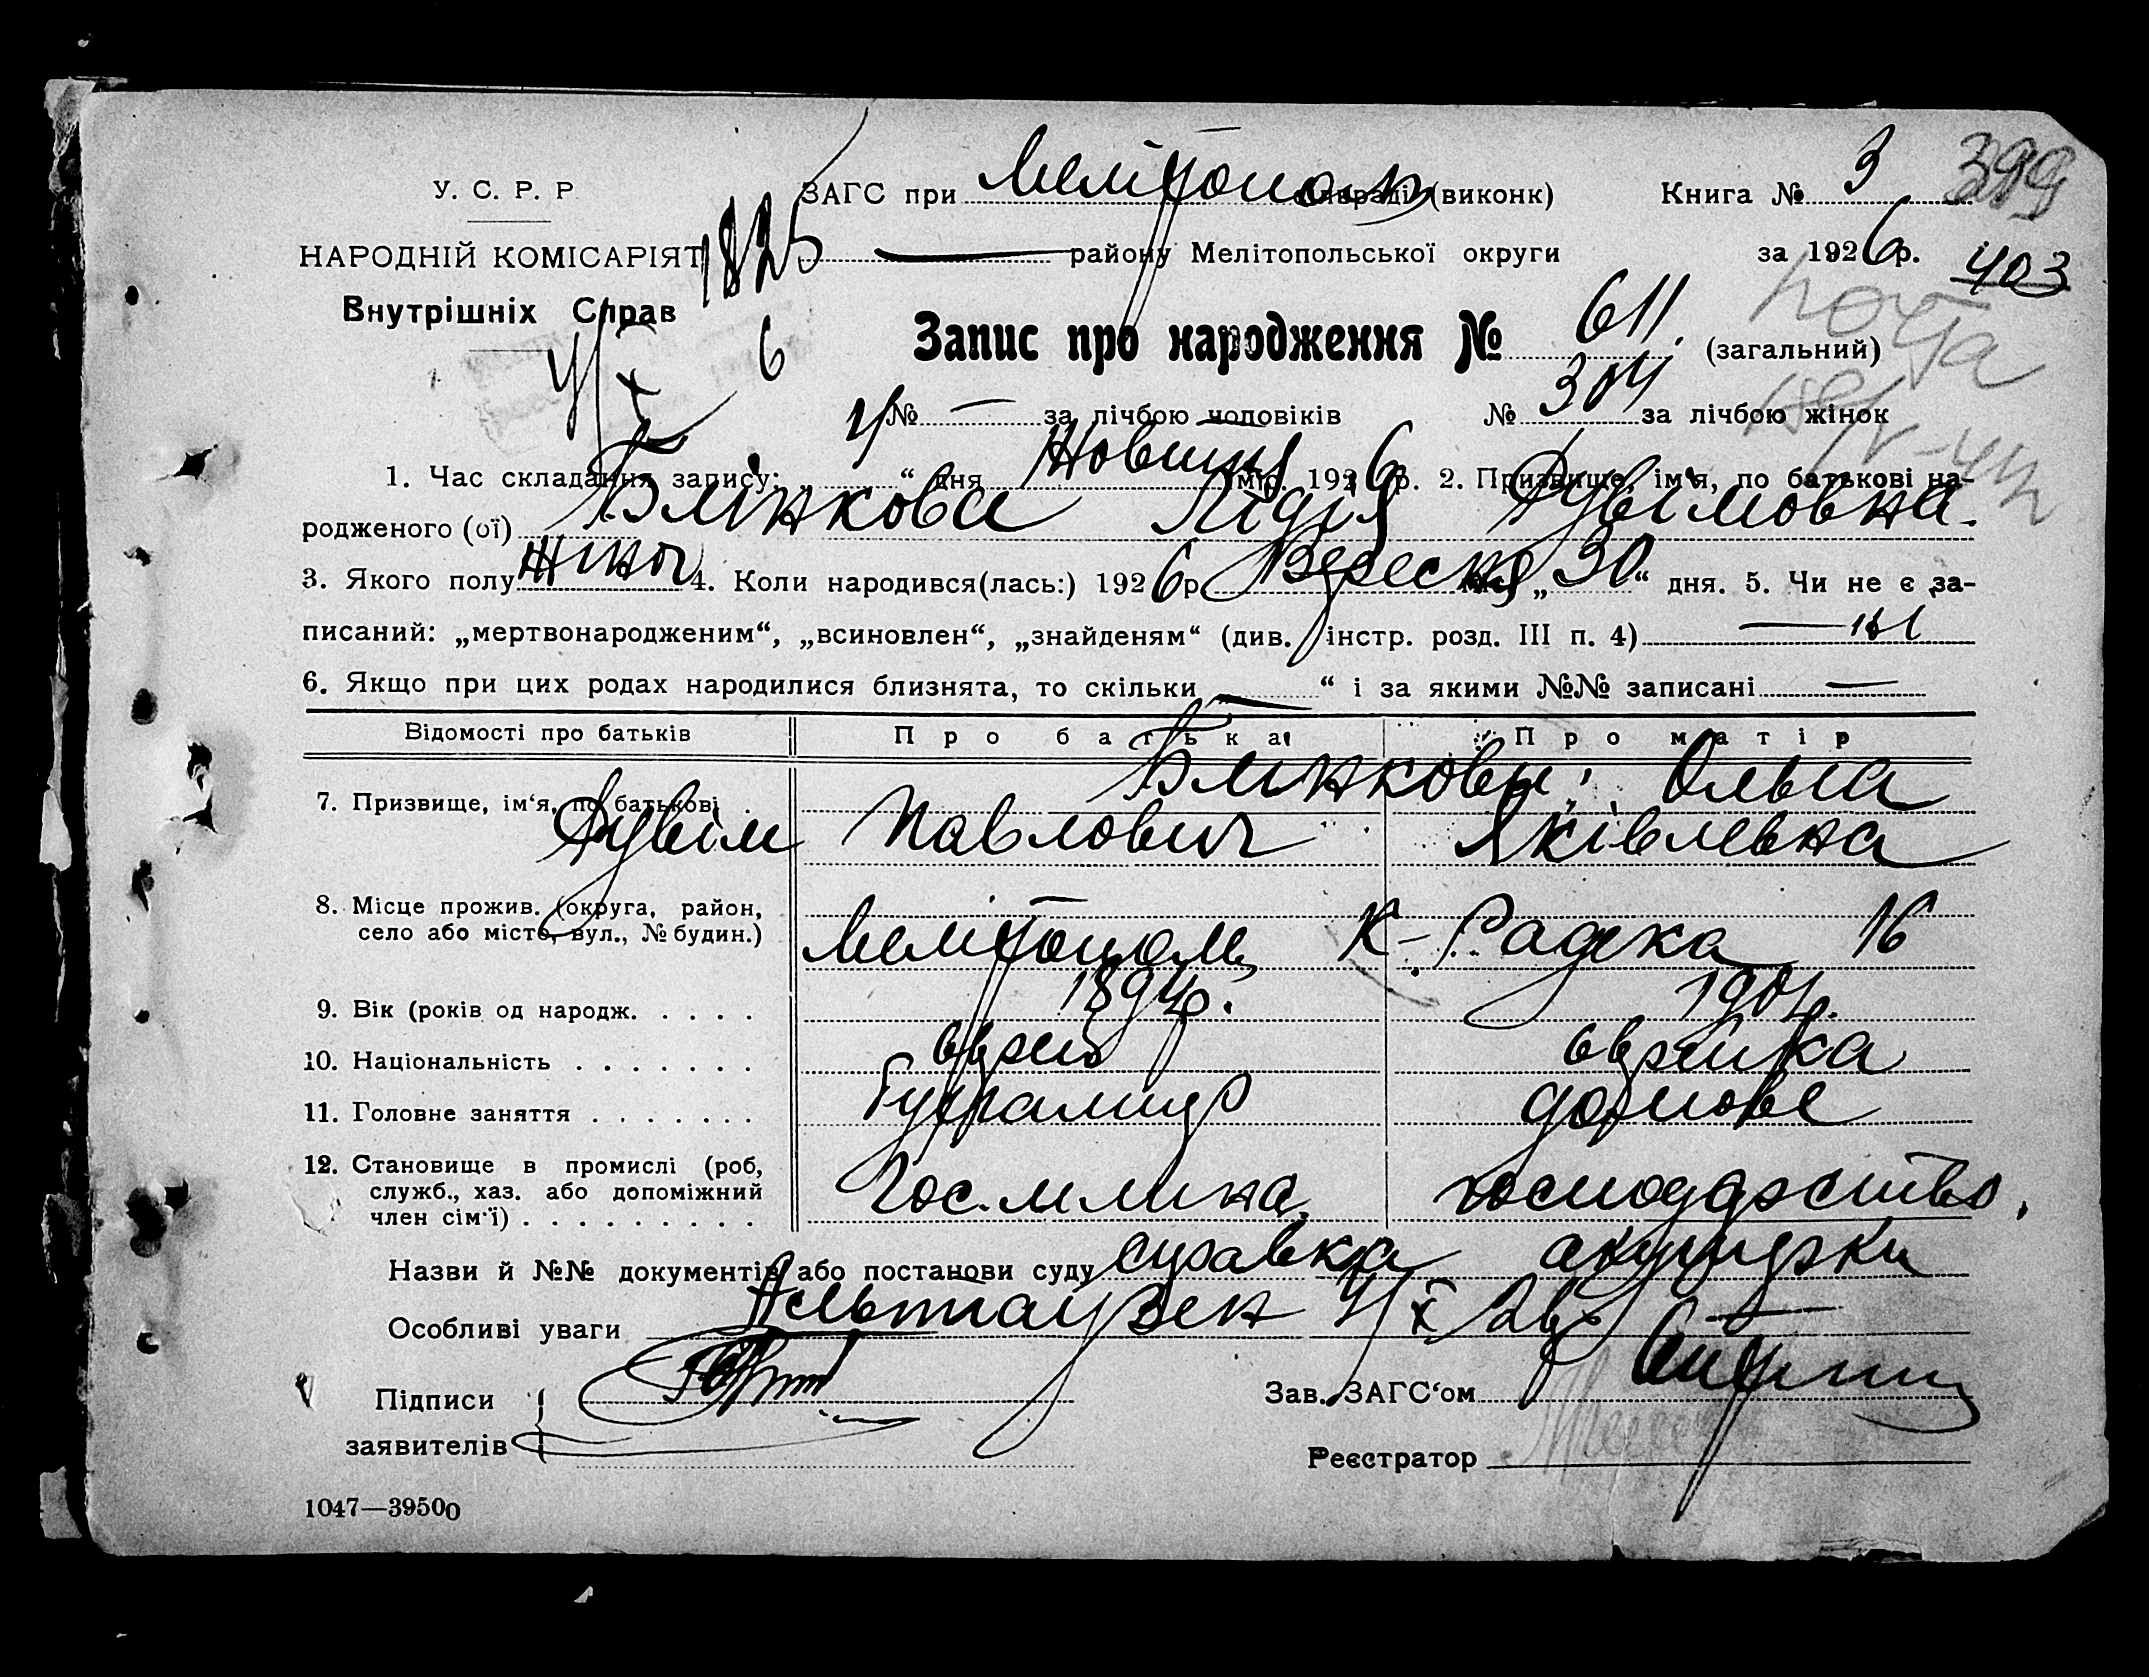 У. С. Р. Р
НАРОДНІЙ КОМІСАРІЯТ
Внутрішніх Справ
1825
4/X 6
ЗАГС при Мелітополь (виконк)
району Мелітопольської округи
Книга № 3
399
за 1926 р.
403
почта
Запис про народження № 611. (загальний)
№ — за лічбою чоловіків № 304 за лічбою жінок
1. Час складання запису: „4“ дня Жовтня міс. 1926 р. 2. Призвище, ім'я, по батькові на-
родженого (ої) Блінкова Лідія Рувімовна.
3. Якого полу жіноч 4. Коли народився(лась:) 1926 р. Вересня міс. „30“ дня. 5. Чи не є за-
писаний: „мертвонародженим“, „всиновлен“, „знайденям“ (див. інстр. розд. III п. 4) —
6. Якщо при цих родах народилися близнята, то скільки — “ і за якими №№ записані —
Відомості про батьків Про батька Про матір
7. Призвище, ім‘я, по батькові . Блінковы: Ольга
Рувім Павлович Яківлевна
8. Місце прожив. (округа, район,
село або місто, вул., № будин.) Мелітополь К-Радека 16
9. Вік (років од народж. . . . . 1894р. 190 р.
10. Національність . . . . . . . еврей еврейка
11. Головне заняття . . . . . . . Бухгалтер домове
12. Становище в промислі (роб,
служб., хаз. або допоміжний
член сім'ї) . . . . . . . . . Гос. млина. господарство.
Назви й №№ документів або постанови суду справка акушерки
Альтгаузен 4/X 26
Особливі уваги
Підписи
заявителів
Зав. ЗАГС‘ом
Реєстратор
1047—39500